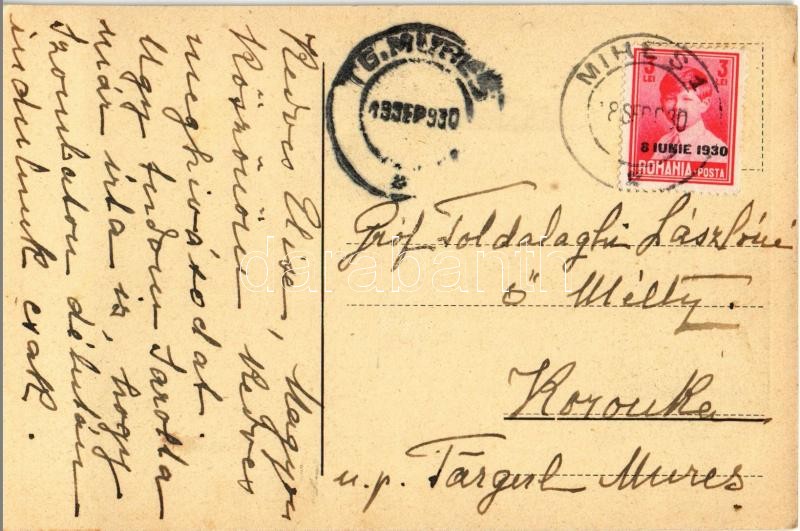 Kedves Elise, Nagyon
Köszönöm kedves
meghívásodat.
Ugy tudom Sarolta
már írta is, hogy
Szombaton délután
indulunk csak.
TG. MUREȘ
19SEP930
MIHEȘ
18SEP930
3 LEI
3 LEI
8 IUNIE 1930
ROMANIA·POSTA
Gróf Toldalaghi Lászlóné
ő Mélts.
Koronka
u.p. Târgul Mureș
darabanth